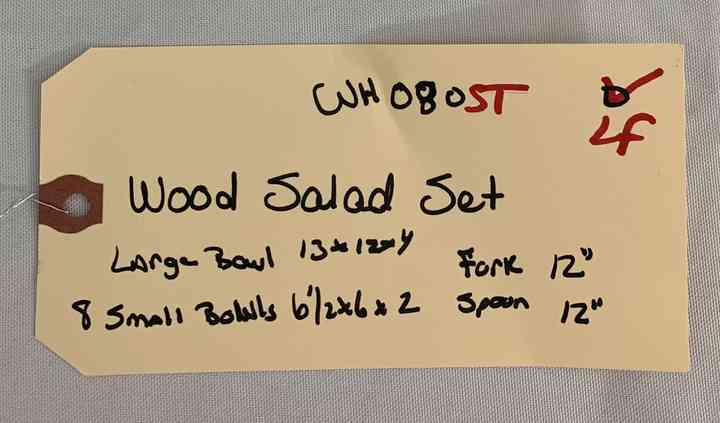 WH080ST D
LF
Wood Salad Set
Large Bowl 13x12x4 Fork 12"
8 Small Bowls 6 1/2x6x2 Spoon 12"